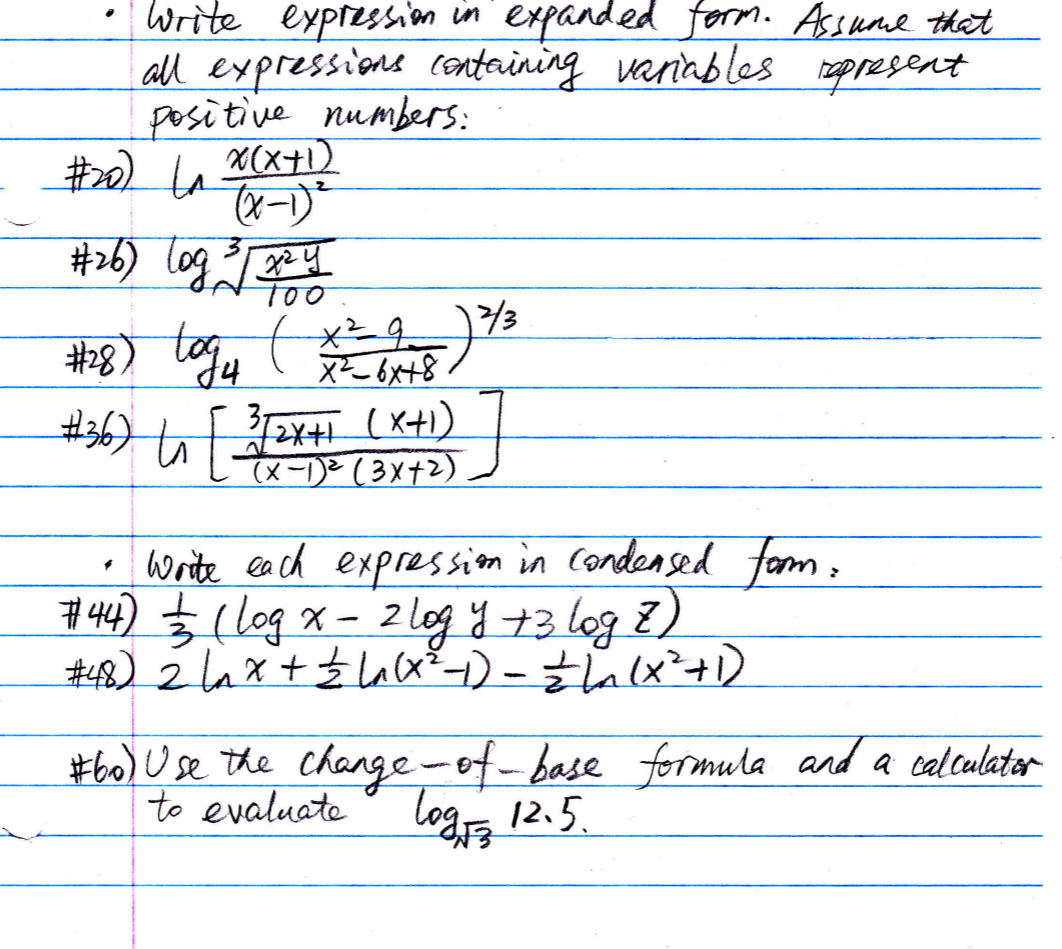 • Write expression in expanded form. Assume that
all expressions containing variables represent
positive numbers:
#20) ln x(x+1)/(x-1)²
#26) log ∛(x²y/100)
#28) log₄ (x²-9/x²-6x+8)^2/3
#36) ln [∛2x+1 (x+1)/(x-1)² (3x+2)]
• Write each expression in condensed form:
#44) 1/3 (log x - 2 log y + 3 log z)
#48) 2 ln x + 1/2 ln(x²-1) - 1/2 ln (x²+1)
#60) Use the change-of-base formula and a calculator
to evaluate log√3 12.5.